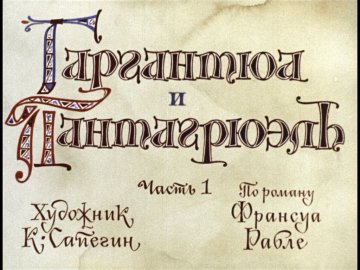 Гаргантюа
и
Пантагрюэль
Часть 1
По роману
Франсуа
Рабле
Художник
К. Сапегин